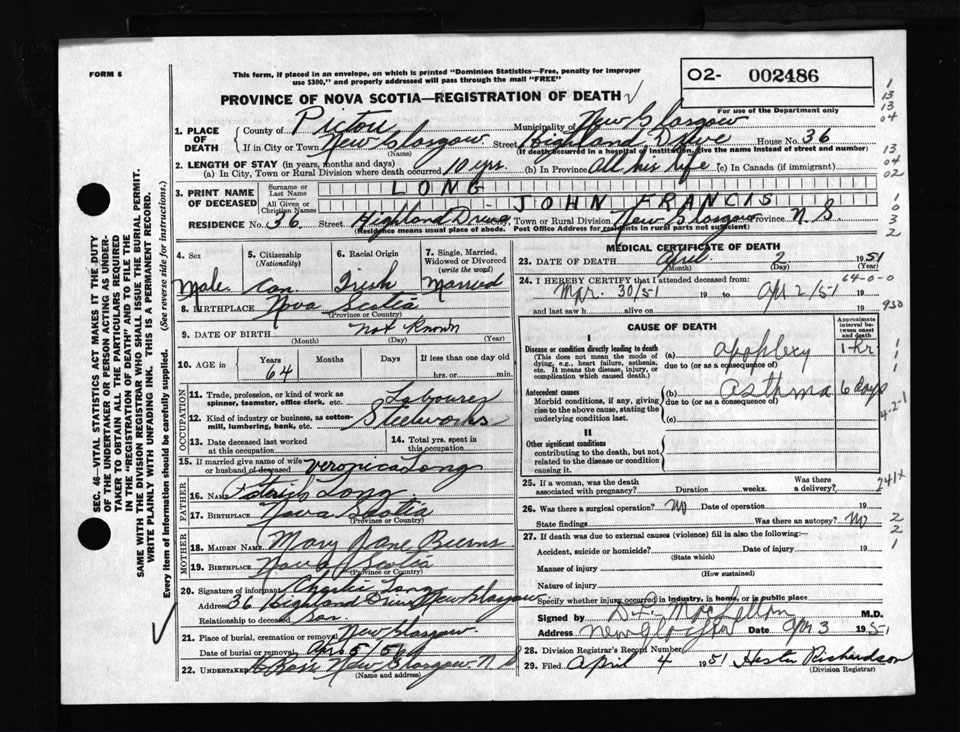 FORM 6
This form, if placed in an envelope, on which is printed "Dominion Statistics—Free, penalty for improper
use $300," and properly addressed will pass through the mail "FREE"
02- 002486
For use of the Department only
PROVINCE OF NOVA SCOTIA—REGISTRATION OF DEATH
1. PLACE OF DEATH
County of Pictou Municipality of New Glasgow
If in City or Town New Glasgow Street Highland Drive House No. 36
(Name) (If death occurred in a hospital or institution, give the name instead of street and number)
2. LENGTH OF STAY (in years, months and days)
(a) In City, Town or Rural Division where death occurred 10 yrs. (b) In Province All his life (c) In Canada (if immigrant)
3. PRINT NAME OF DECEASED
Surname or Last Name LONG
All Given or Christian Names JOHN FRANCIS
RESIDENCE No. 36 Street Highland Drive, Town or Rural Division New Glasgow Province N.S.
(Residence means usual place of abode. Post Office Address for residents in rural parts not sufficient)
4. Sex
Male
5. Citizenship (Nationality)
Can.
6. Racial Origin
Irish
7. Single, Married, Widowed or Divorced (write the word)
Married
8. BIRTHPLACE Nova Scotia
(Province or Country)
9. DATE OF BIRTH not known
(Month) (Day) (Year)
10. AGE in Years Months Days If less than one day old
64 hrs. or min.
OCCUPATION
11. Trade, profession, or kind of work as spinner, teamster, office clerk. etc. Labourer
12. Kind of industry or business, as cotton-mill, lumbering, bank, etc. Steelworks
13. Date deceased last worked at this occupation
14. Total yrs. spent in this occupation
15. If married give name of wife or husband of deceased Veronica Long
FATHER
16. NAME Patrick Long
17. BIRTHPLACE Nova Scotia
(Province or Country)
MOTHER
18. MAIDEN NAME Mary Jane
19. BIRTHPLACE Nova Scotia
(Province or Country)
20. Signature of informant Charlie Long
Address 36 Highland Drive New Glasgow
Relationship to deceased Son
21. Place of burial, cremation or removal New Glasgow
Date of burial or removal Apr 5/51
22. UNDERTAKER New Glasgow N S
(Name and address)
MEDICAL CERTIFICATE OF DEATH
23. DATE OF DEATH April 2 1951
(Month) (Day) (Year)
64-0-0
24. I HEREBY CERTIFY that I attended deceased from:
Mar. 30/51 19 to Apr 2/51 19
and last saw h alive on 19
CAUSE OF DEATH
Approximate interval between onset and death
I
Disease or condition directly leading to death
(This does not mean the mode of dying, e.g., heart failure, asthenia, etc. It means the disease, injury, or complication which caused death.)
(a) apoplexy 1 hr
due to (or as a consequence of)
Antecedent causes
Morbid conditions, if any, giving rise to the above cause, stating the underlying condition last.
(b) asthma 6 days
due to (or as a consequence of)
(c)
II
Other significant conditions
contributing to the death, but not related to the disease or condition causing it.
25. If a woman, was the death associated with pregnancy? Duration weeks. Was there a delivery?
26. Was there a surgical operation? No Date of operation 19
State findings Was there an autopsy? No
27. If death was due to external causes (violence) fill in also the following:—
Accident, suicide or homicide? Date of injury 19
(State which)
Manner of injury
(How sustained)
Nature of injury
Specify whether injury occurred in industry, in home, or in public place
Signed by M.D.
Address New Glasgow Date Apr 3 1951
28. Division Registrar's Record Number
29. Filed April 4 1951 Hester Richardson
(Division Registrar)
SEC. 46—VITAL STATISTICS ACT MAKES IT THE DUTY
OF THE UNDERTAKER OR PERSON ACTING AS UNDER-
TAKER TO OBTAIN ALL THE PARTICULARS REQUIRED
IN THE "REGISTRATION OF DEATH" AND TO FILE THE
SAME WITH THE DIVISION REGISTRAR WHO SHALL ISSUE THE BURIAL PERMIT.
WRITE PLAINLY WITH UNFADING INK. THIS IS A PERMANENT RECORD.
Every item of Information should be carefully supplied. (See reverse side for instructions.)
1
13
13
04
13
04
02
1
0
3
2
950
1
1
1
4-2-1
241x
2
2
1